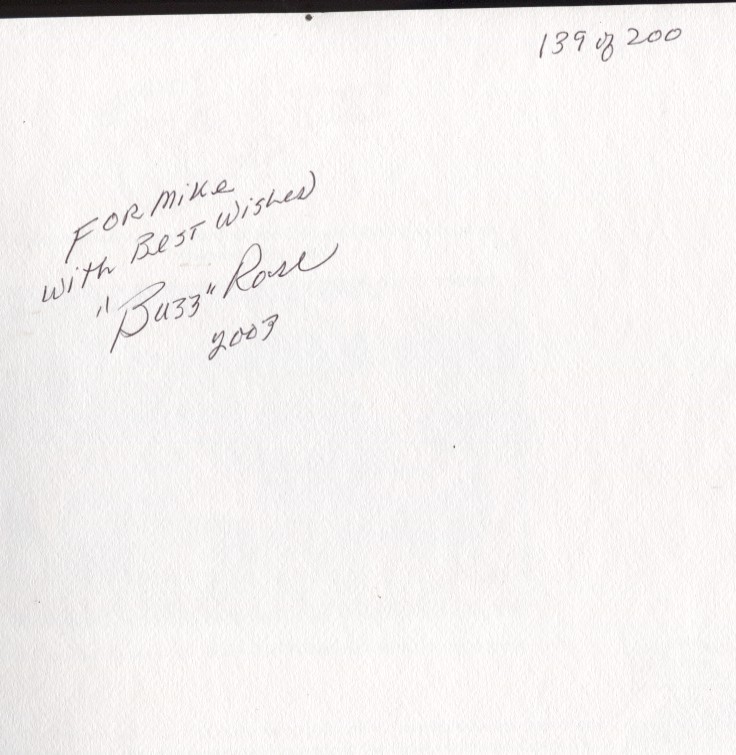 139 of 200
FOR Mike
with Best Wishes
"Buzz" Rose
2003